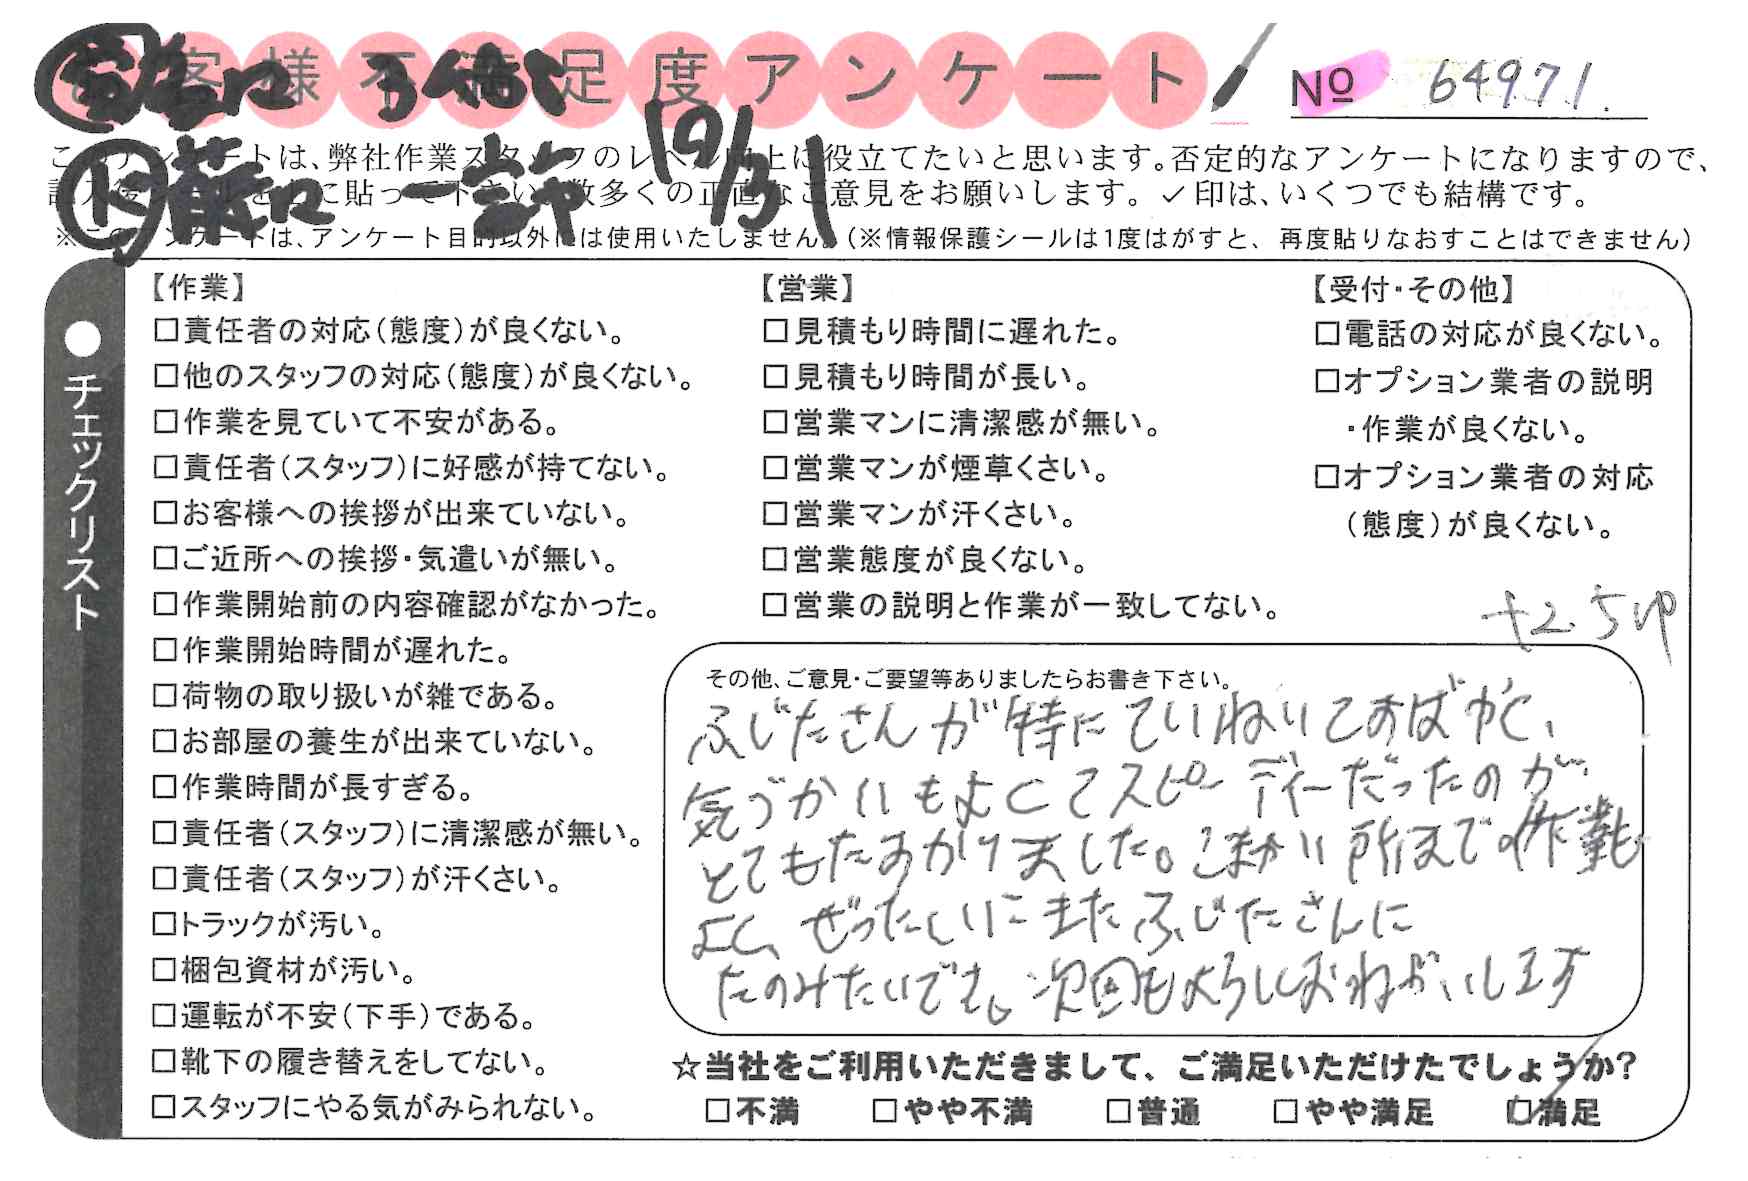 お客様不満足度アンケート
№ 64971.
10/31
このアンケートは、弊社作業スタッフのレベル向上に役立てたいと思います。否定的なアンケートになりますので、
記入後シールを上に貼って下さい。数多くの正直なご意見をお願いします。✓印は、いくつでも結構です。
※このアンケートは、アンケート目的以外には使用いたしません。(※情報保護シールは1度はがすと、再度貼りなおすことはできません)
●チェックリスト
【作業】
□責任者の対応(態度)が良くない。
□他のスタッフの対応(態度)が良くない。
□作業を見ていて不安がある。
□責任者(スタッフ)に好感が持てない。
□お客様への挨拶が出来ていない。
□ご近所への挨拶・気遣いが無い。
□作業開始前の内容確認がなかった。
□作業開始時間が遅れた。
□荷物の取り扱いが雑である。
□お部屋の養生が出来ていない。
□作業時間が長すぎる。
□責任者(スタッフ)に清潔感が無い。
□責任者(スタッフ)が汗くさい。
□トラックが汚い。
□梱包資材が汚い。
□運転が不安(下手)である。
□靴下の履き替えをしてない。
□スタッフにやる気がみられない。
【営業】
□見積もり時間に遅れた。
□見積もり時間が長い。
□営業マンに清潔感が無い。
□営業マンが煙草くさい。
□営業マンが汗くさい。
□営業態度が良くない。
□営業の説明と作業が一致してない。
【受付・その他】
□電話の対応が良くない。
□オプション業者の説明
・作業が良くない。
□オプション業者の対応
(態度)が良くない。
+2.5up
その他、ご意見・ご要望等ありましたらお書き下さい。
ふじたさんが特にていねいですばやく、
気づかいもよくてスピーディーだったのが
とてもたすかりました。こまかい所まで作業も
よく、ぜったいにまたふじたさんに
たのみたいです。次回もよろしくおねがいします
☆当社をご利用いただきまして、ご満足いただけたでしょうか?
□不満 □やや不満 □普通 □やや満足 ☑満足